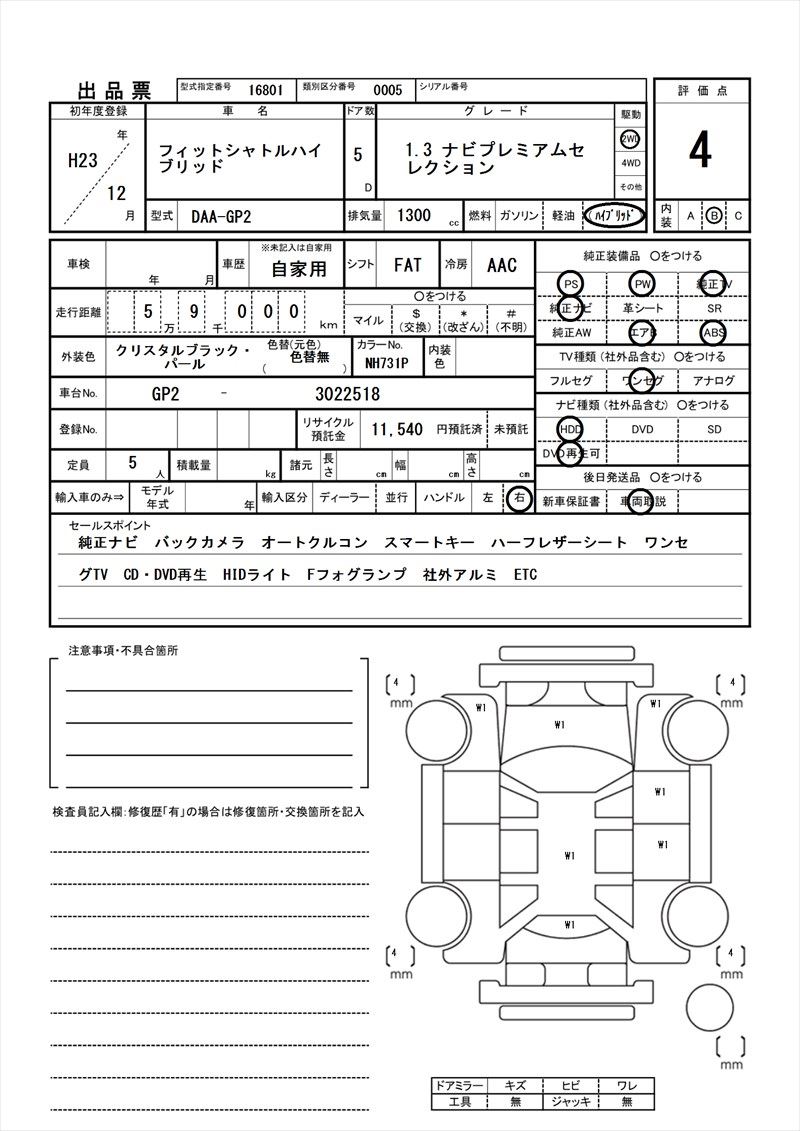 出品票 型式指定番号 16801 類別区分番号 0005 シリアル番号
評価点
初年度登録 車名 ドア数 グレード 駆動
H23 年 12 月
フィットシャトルハイ
ブリッド
5 D
1.3 ナビプレミアムセ
レクション
2WD
4WD
その他
4
型式 DAA-GP2 排気量 1300 cc 燃料 ガソリン 軽油 (ハイブリッド)
内装 A B C
車検 年 月 車歴 ※未記入は自家用 自家用 シフト FAT 冷房 AAC
純正装備品 〇をつける
PS PW 純正TV
純正ナビ 革シート SR
純正AW エアB ABS
走行距離 5 9 0 0 0 万 千 km
〇をつける
マイル $ (交換) * (改ざん) # (不明)
外装色 クリスタルブラック・
パール
色替(元色)
( 色替無 )
カラーNo. NH731P 内装色
TV種類(社外品含む) 〇をつける
フルセグ ワンセグ アナログ
車台No. GP2 - 3022518
ナビ種類(社外品含む) 〇をつける
HDD DVD SD
DVD再生可
登録No. リサイクル預託金 11,540 円預託済 未預託
定員 5 人 積載量 kg 諸元 長さ cm 幅 cm 高さ cm
後日発送品 〇をつける
新車保証書 車両取説
輸入車のみ⇒ モデル年式 年 輸入区分 ディーラー 並行 ハンドル 左 右
セールスポイント
純正ナビ バックカメラ オートクルコン スマートキー ハーフレザーシート ワンセ
グTV CD・DVD再生 HIDライト Fフォグランプ 社外アルミ ETC
注意事項・不具合箇所
4 mm
4 mm
W1 W1 W1
W1
W1
W1
W1
検査員記入欄:修復歴「有」の場合は修復箇所・交換箇所を記入
4 mm
4 mm
mm
ドアミラー キズ ヒビ ワレ
工具 無 ジャッキ 無